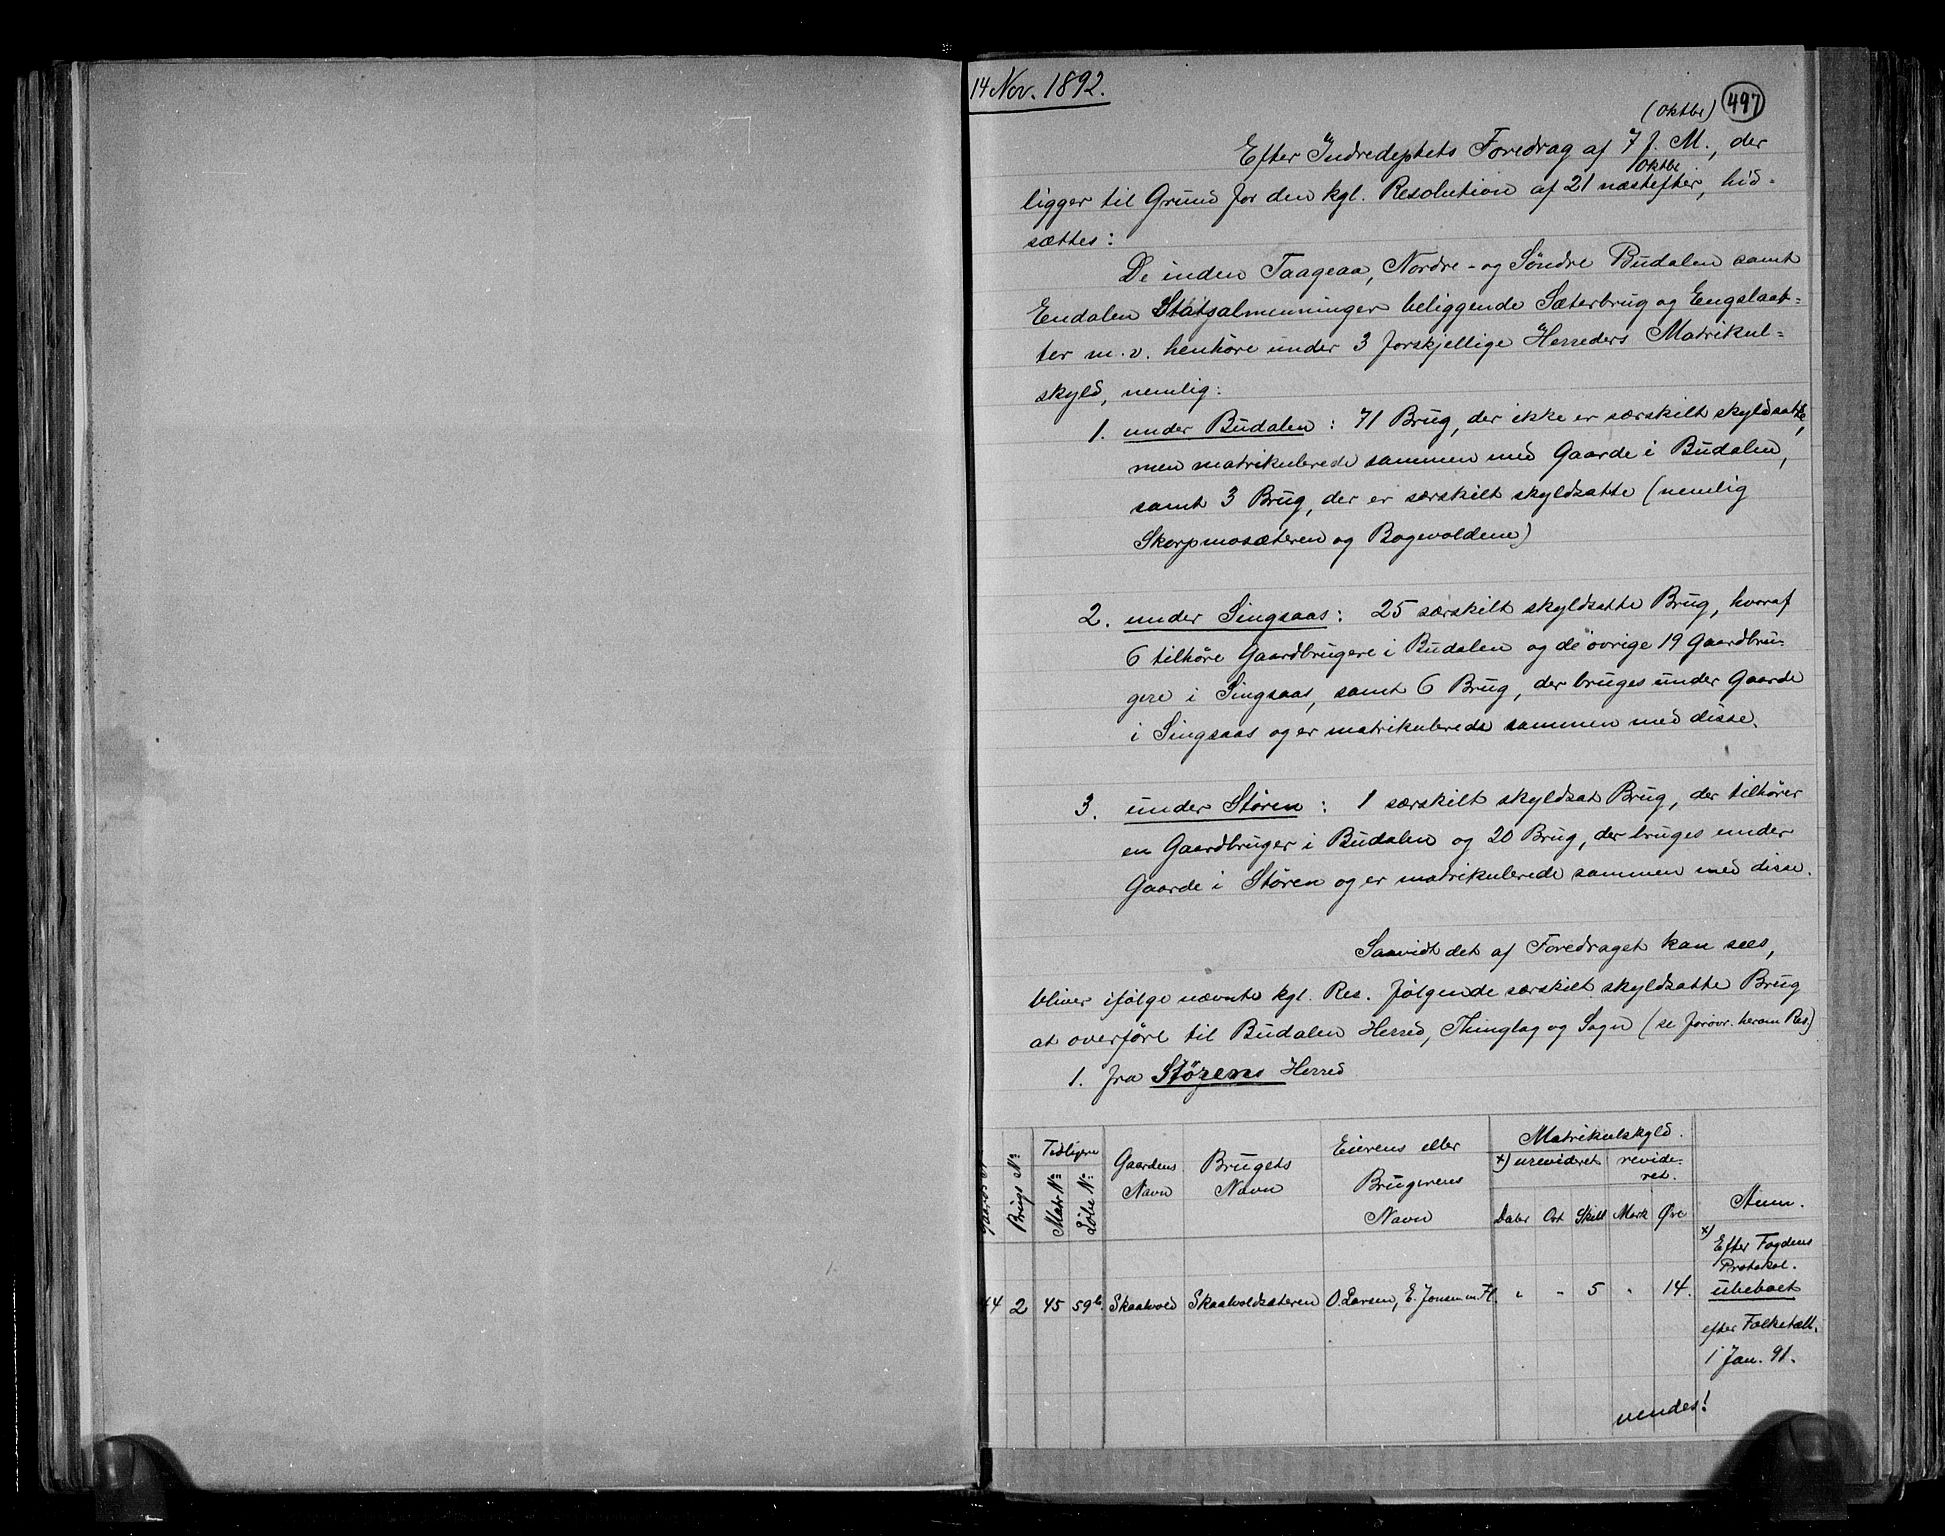 14 Nov. 1892.
(Oktbr) 497
Efter Indredeptets Foredrag af 7 f. M., der
Oktbr
ligger til Grund for den kgl. Resolution af 21 næstefter, hid-
sættes:
De inden Taageaa, Nordre- og Søndre Budalen samt
Endalen Statsalmenninger beliggende Sæterbrug og Engslaat-
ter m. v. henhøre under 3 forskjellige Herreders Matrikul-
skyld, nemlig:
1. under Budalen: 71 Brug, der ikke er særskilt skyldsatte,
men matrikulerede sammen med Gaarde i Budalen,
samt 3 Brug, der er særskilt skyldsatte (nemlig
Skorpmosæteren og Bogevoldene)
2. under Singsaas: 25 særskilt skyldsatte Brug, hvoraf
6 tilhöre Gaardbrugere i Budalen og de øvrige 19 Gaardbru-
gere i Singsaas, samt 6 Brug, der bruges under Gaarde
i Singsaas og er matrikulerede sammen med disse.
3. under Støren: 1 særskilt skyldsat Brug, der tilhører
en Gaardbruger i Budalen og 20 Brug, der bruges under
Gaarde i Støren og er matrikulerede sammen med disse.
Saavidt det af Foredraget kan sees,
bliver ifølge nævnte kgl. Res. følgende særskilt skyldsatte Brug
at overføre til Budalen Herred, Thinglag og Sogn (se forøvr. herom Res.)
1. fra Störens Herred
Gaards No Brugs No Tidligere Matr No Løbe No Gaardens Navn Brugets Navn Eierens eller Brugerens Navn Matrikulskyld. x) urevideret revide-ret. Daler Ort Skill Mark Øre Anm.
x) Efter Fogdens
Protokol.
44 2 45 59b. Skaalvold Skaalvoldsæteren O. Larsen, E. Jonsen m. Fl. " " 5 " 14. ubeboet
efter Folketæll.
1 Jan. 91.
vendes!